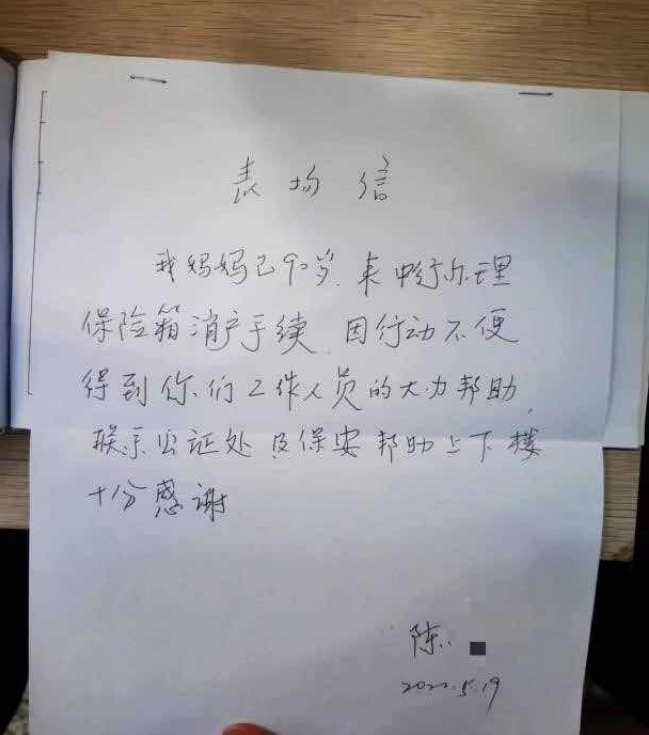 表扬信
我妈妈已90岁.来中行办理
保险箱消户手续.因行动不便
得到你们工作人员的大力帮助,
联系公证处及保安帮助上下楼
十分感谢
陈
2022.5.19